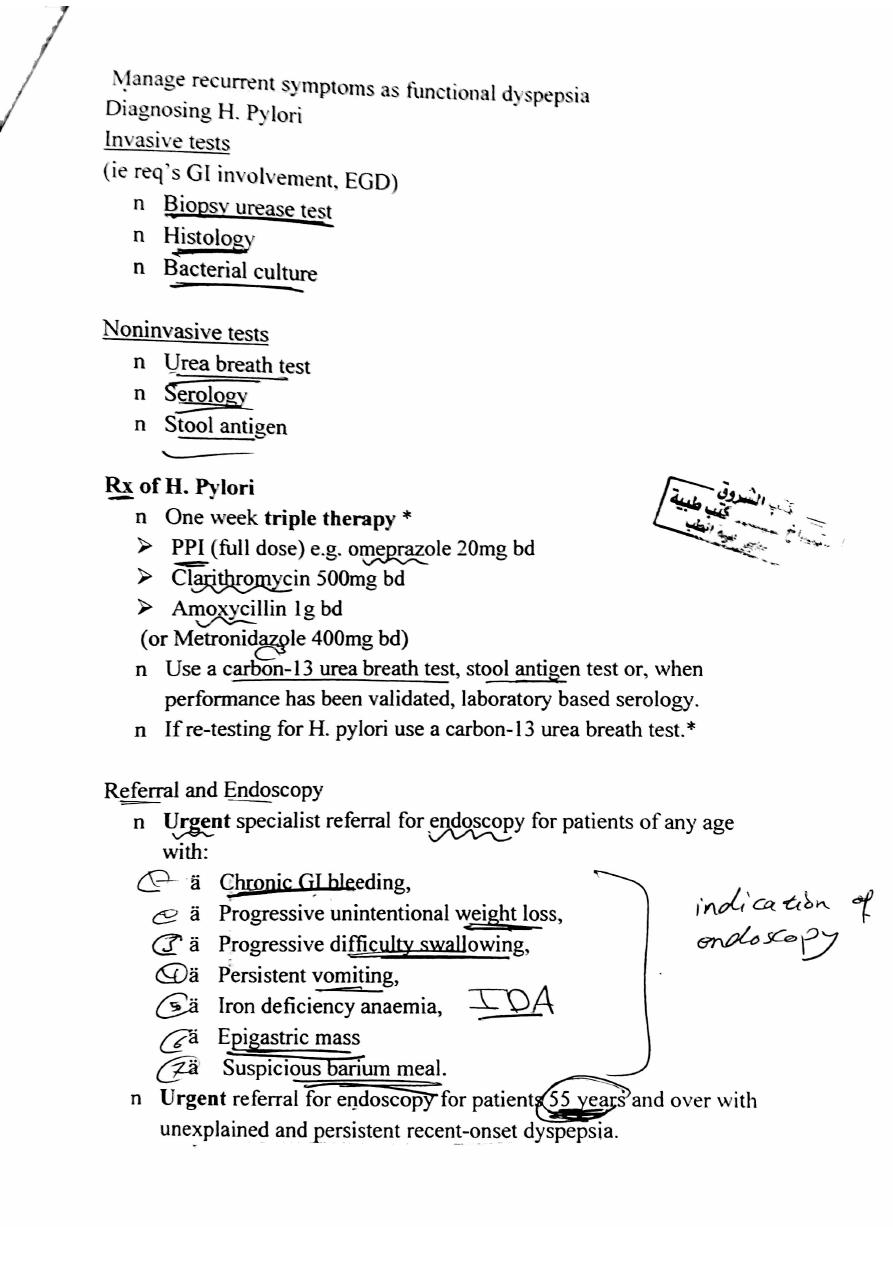 Manage recurrent symptoms as functional dyspepsia
Diagnosing H. Pylori
Invasive tests
(ie req's GI involvement, EGD)
n Biopsy urease test
n Histology
n Bacterial culture
Noninvasive tests
n Urea breath test
n Serology
n Stool antigen
Rx of H. Pylori
n One week triple therapy *
➢ PPI (full dose) e.g. omeprazole 20mg bd
➢ Clarithromycin 500mg bd
➢ Amoxycillin 1g bd
(or Metronidazole 400mg bd)
n Use a carbon-13 urea breath test, stool antigen test or, when
performance has been validated, laboratory based serology.
n If re-testing for H. pylori use a carbon-13 urea breath test.*
الشروق
كتب طبية
Referral and Endoscopy
n Urgent specialist referral for endoscopy for patients of any age
with:
1 ä Chronic GI bleeding,
2 ä Progressive unintentional weight loss,
3 ä Progressive difficulty swallowing,
4 ä Persistent vomiting,
5 ä Iron deficiency anaemia, IDA
6 ä Epigastric mass
7 ä Suspicious barium meal.
indication of
endoscopy
n Urgent referral for endoscopy for patients 55 years and over with
unexplained and persistent recent-onset dyspepsia.